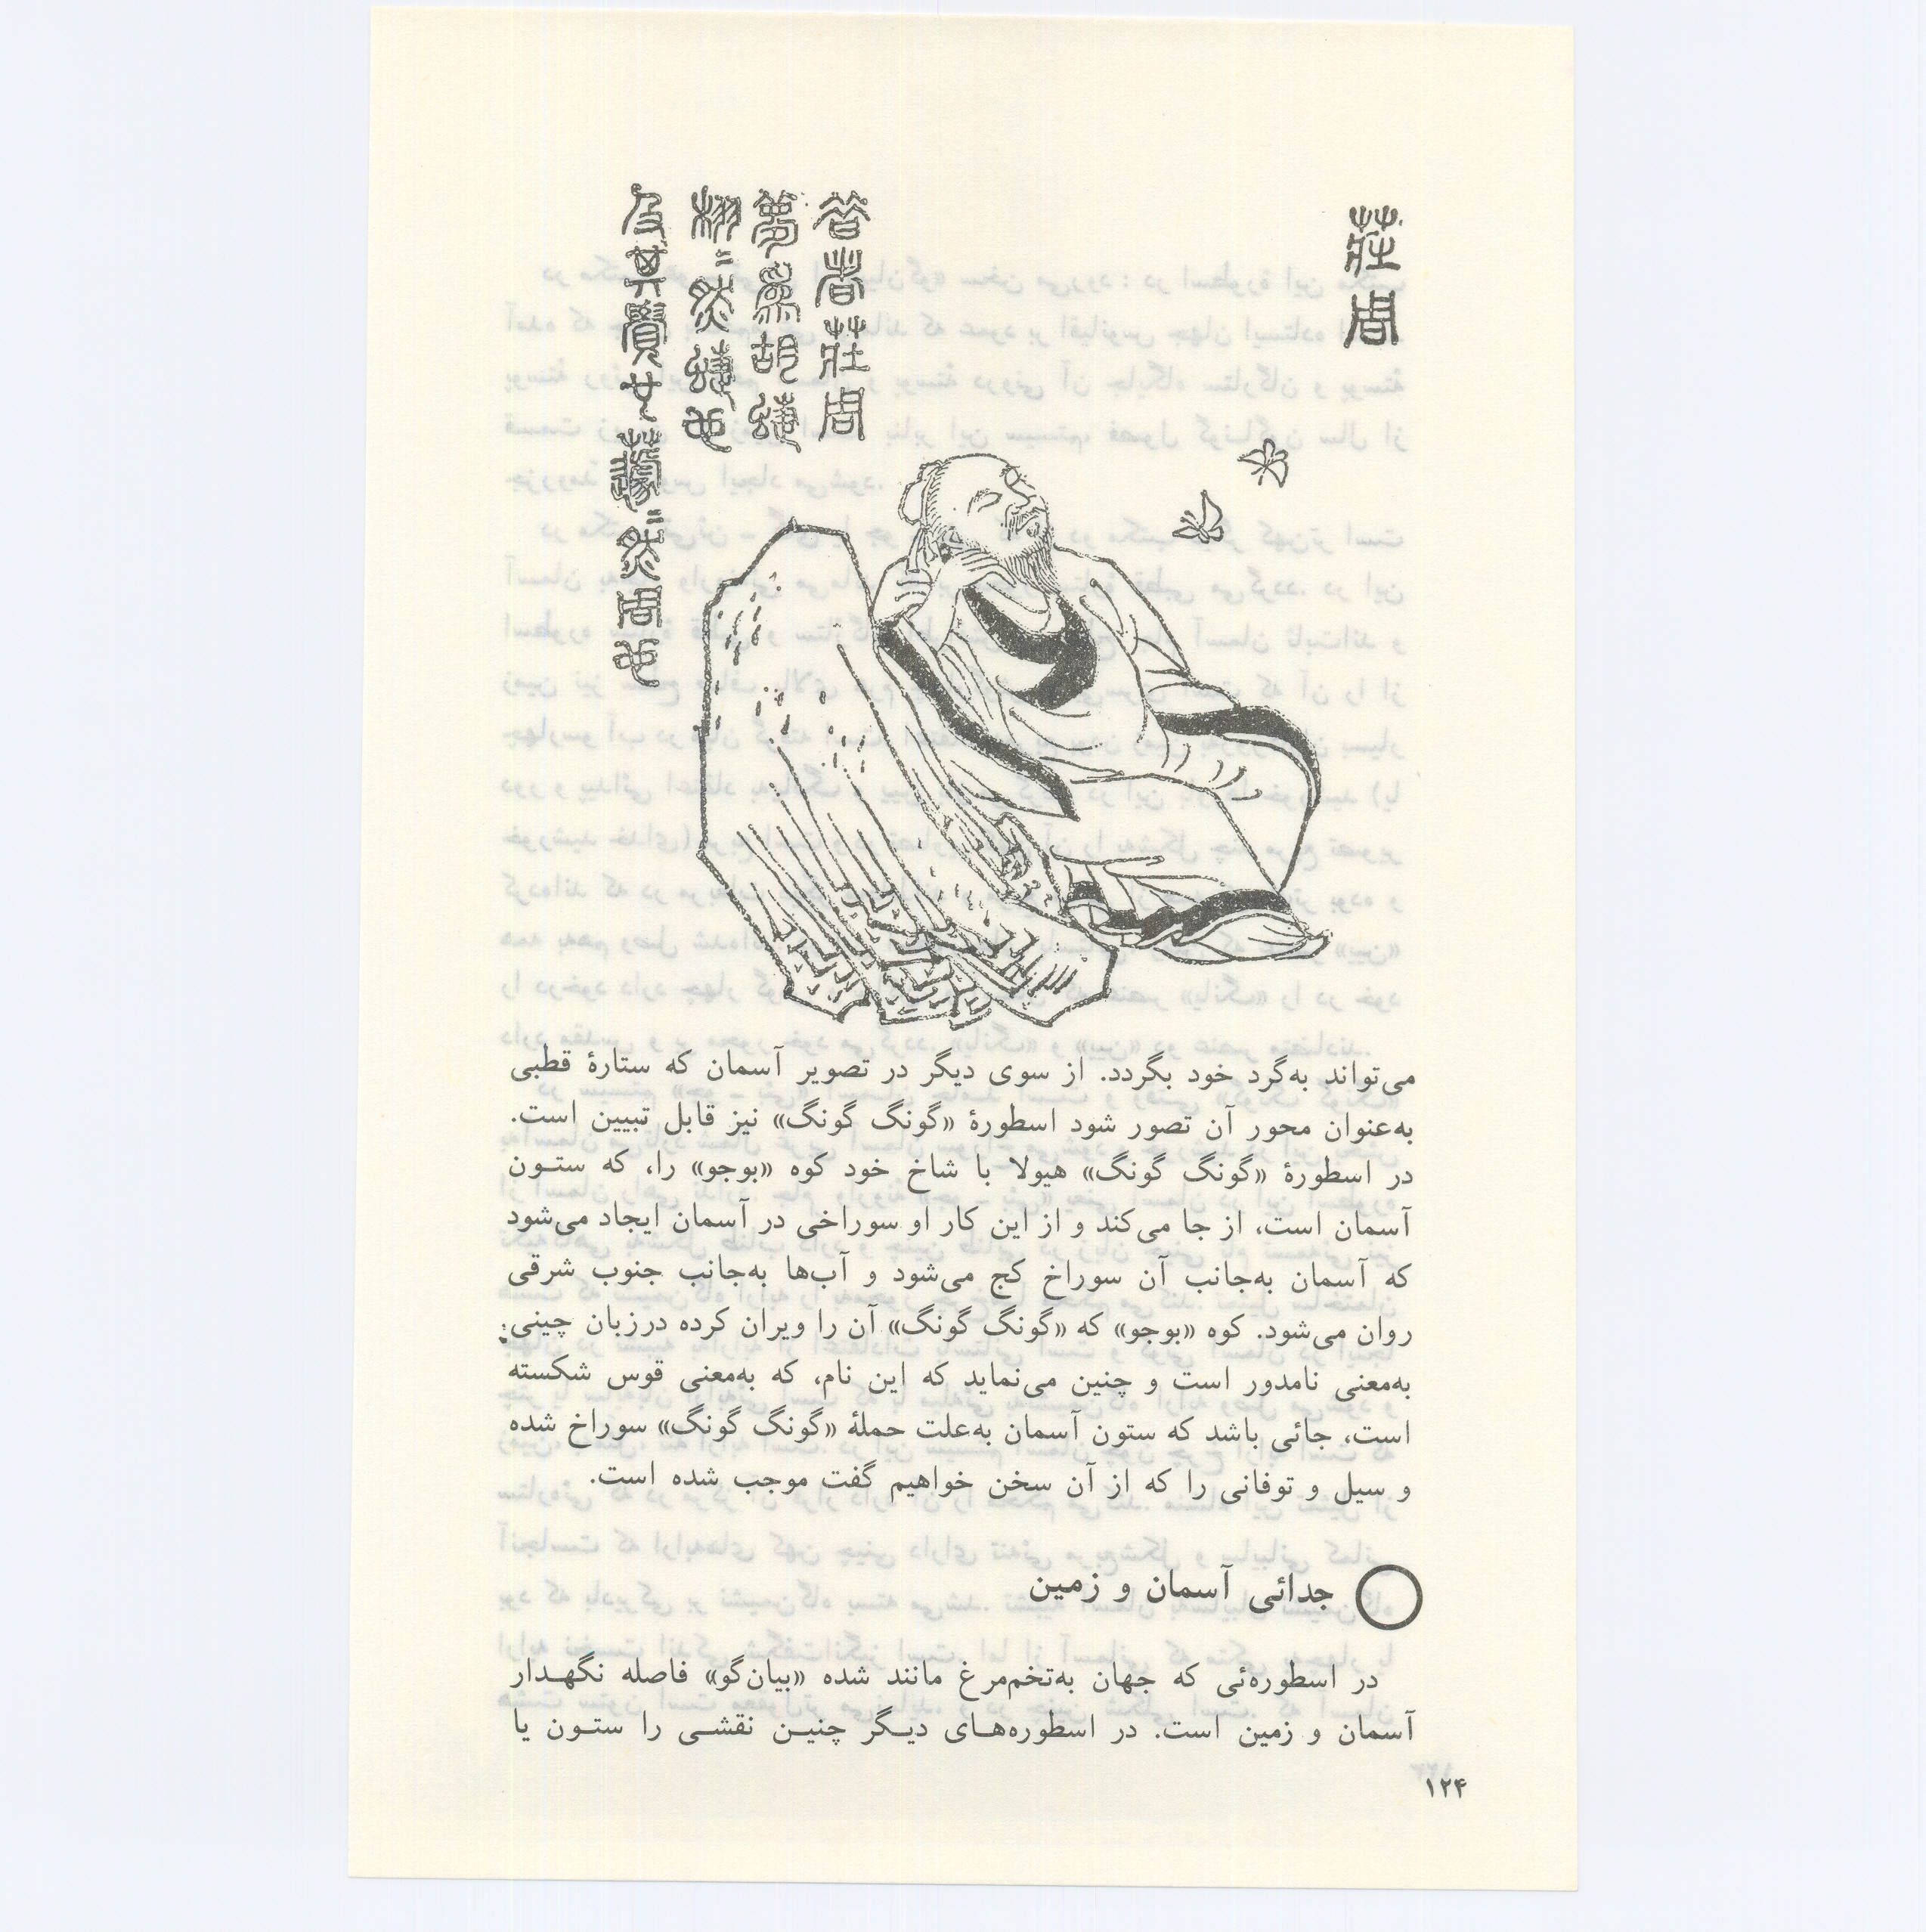 莊周
昔者莊周
夢爲胡蝶
栩〻然蝶也
及其覺也蘧〻然周也
می‌تواند به‌گرد خود بگردد. از سوی دیگر در تصویر آسمان که ستارهٔ قطبی
به‌عنوان محور آن تصور شود اسطورهٔ «گونگ گونگ» نیز قابل تبیین است.
در اسطورهٔ «گونگ گونگ» هیولا با شاخ خود کوه «بوجو» را، که ستـون
آسمان است، از جا می‌کند و از این کار او سوراخی در آسمان ایجاد می‌شود
که آسمان به‌جانب آن سوراخ کج می‌شود و آب‌ها به‌جانب جنوب شرقی
روان می‌شود. کوه «بوجو» که «گونگ گونگ» آن را ویران کرده درزبان چینی؛
به‌معنی نامدور است و چنین می‌نماید که این نام، که به‌معنی قوس شکسته
است، جائی باشد که ستون آسمان به‌علت حملهٔ «گونگ گونگ» سوراخ شده
و سیل و توفانی را که از آن سخن خواهیم گفت موجب شده است.
جدائی آسمان و زمین
در اسطوره‌ئی که جهان به‌تخم‌مرغ مانند شده «بیان‌گو» فاصله نگهـدار
آسمان و زمین است. در اسطوره‌هـای دیـگر چنیـن نقشـی را ستـون یا
۱۲۴